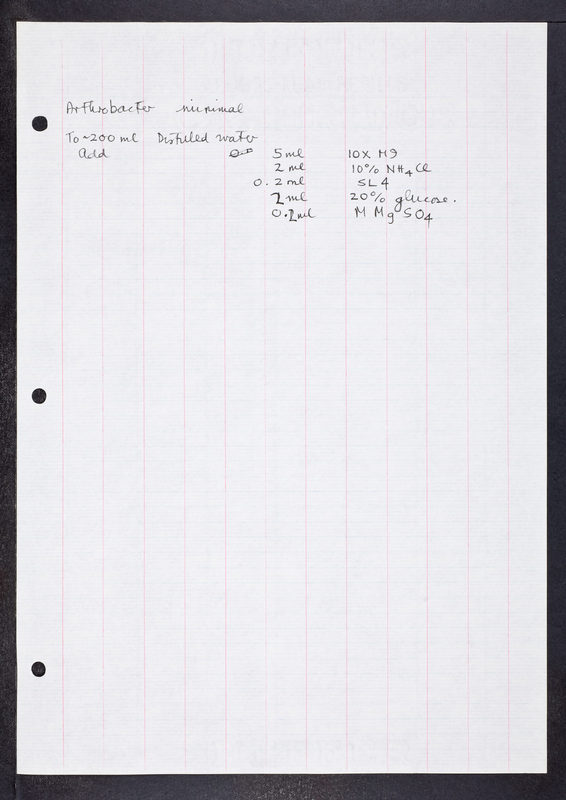 Arthrobacter minimal
To ~200 ml Distilled water
add 5 ml 10X M9
2 ml 10% NH4Cl
0.2 ml SL4
2 ml 20% glucose.
0.2 ml M MgSO4